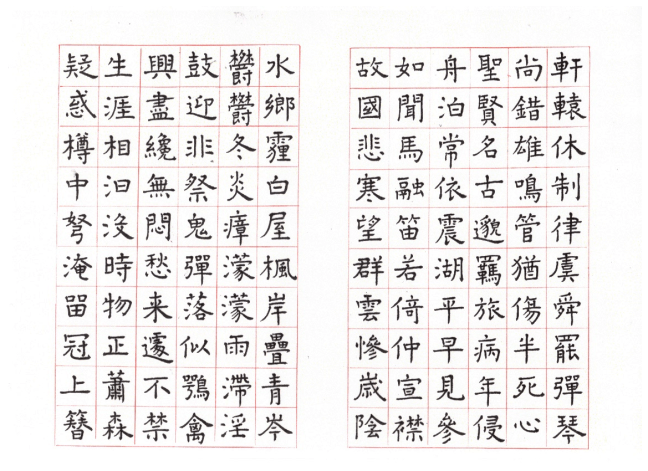 軒轅休制律虞舜罷彈琴
尚錯雄鳴管猶傷半死心
聖賢名古邈羈旅病年侵
舟泊常依震湖平早見參
如聞馬融笛若倚仲宣襟
故國悲寒望群雲慘歲陰
水鄉霾白屋楓岸疊青岑
鬱鬱冬炎瘴濛濛雨滯淫
鼓迎非祭鬼彈落似鴞禽
興盡纔無悶愁来遽不禁
生涯相汩沒時物正蕭森
疑惑樽中弩淹留冠上簪